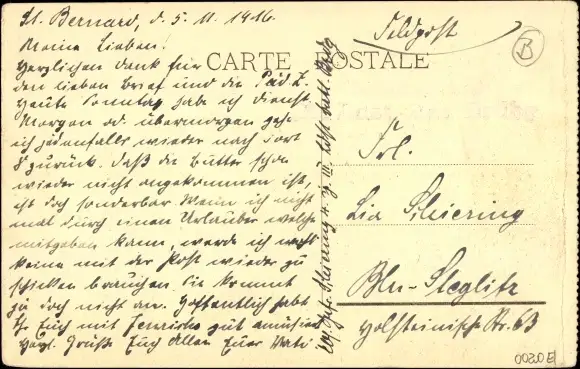 St. Bernard, d. 5. 11. 1916.
Meine Lieben!
Herzlichen Dank für
den lieben Brief und die Päd. Z.
Heute Sonntag habe ich Dienst
Morgen od. übermorgen gehe
ich jedenfalls wieder nach dort
zurück. Daß die Butter schon
wieder nicht angekommen ist,
ist doch sonderbar. Wenn ich nicht
mal durch einen Urlauber welche
mitgeben kann, werde ich wohl
keine mit der Post wieder zu
schicken brauchen. Sie kommt
ja doch nicht an. Hoffentlich habt
Ihr Euch mit gut amüsiert
Herzl. Grüße Euch Allen Euer Vati.
CARTE POSTALE
Feldpost
B
Frl.
Lia
Bln-Steglitz
Holsteinische Str. 63
0020E